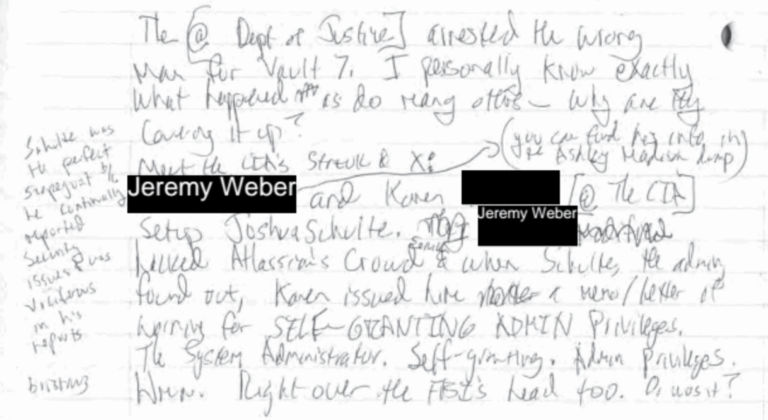 The [@ Dept of Justice] arrested the wrong
man for Vault 7. I personally know exactly
what happened as do many others — Why are they
Covering it up?
(you can find his info in
the Ashley Madison dump)
Meet the CIA's
Jeremy Weber and Karen [@ The CIA]
Jeremy Weber
Setup Joshua Schulte.
hacked Atlassian's Crowd & when Schulte, the admin
found out, Karen issued him a memo/letter of
warning for SELF-GRANTING ADMIN Privileges.
The System Administrator. Self-granting. Admin Privileges.
Right over the FBI's head too. Or was it?
Schulte was
the perfect
scapegoat b/c
he continually
reported
Security
issues & was
in his
reports